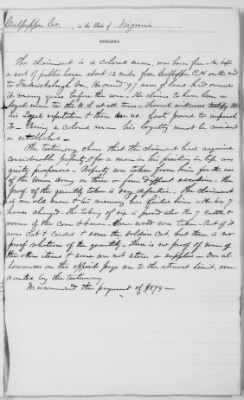 Culpepper Co. in the State of Virginia
REMARKS.
The claimant is a colored man, was born free. He kept
a sort of public house about 12 miles from Culpepper C.H. on the road
to Fredericksburg Va. He owned 97 acres of land had owned
it many years before the war. He claims to have been a
loyal man to the U.S. at all times. Several witnesses testify to
his loyal reputation & there are no facts found to opposed
to Being a colored man his loyalty must be considered
as established.
The testimony shows that the claimant had acquired
considerable property & for a man in his position in life was
quite prosperous. Property was taken from him for the use
of the army during the war on different occasions the
proof of the quantity taken is very defective. The claimant
is an old man & his memory has failed him. He has 7
horses charged the taking of six is proved also the 7 cattle &
some of the corn & bacon. Some wood was taken part of it
was cut & corded & some the soldiers cut, but there is no
proof whatever of the quantity. There is no proof of some of
the other items & some are not stores or supplies. Our al
lowances on the opposite page are to the utmost limit, war
ranted by the testimony
We recommend the payment of $879—